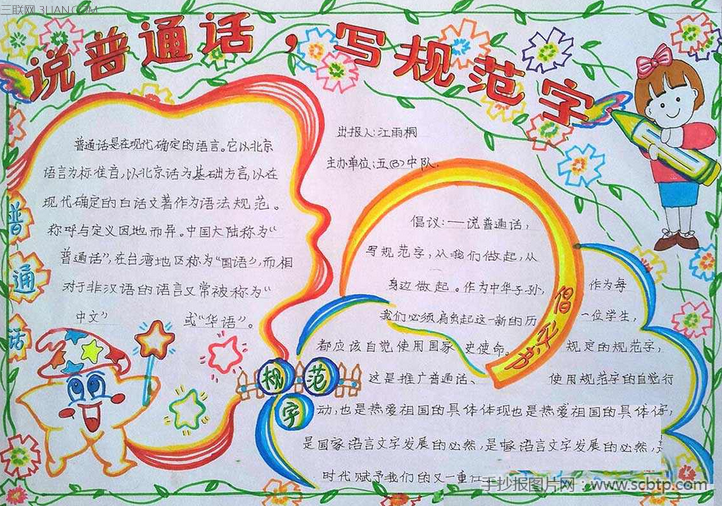 三联网 3LIAN.COM
说普通话，写规范字
出报人：江雨桐
主办单位：五(四)中队
普通话是在现代确定的语言。它以北京
语言为标准音，以北京话为基础方言，以在
现代确定的白话文著作为语法规范。
称呼与定义因地而异。中国大陆称为“
普通话”，在台湾地区称为“国语”，而相
对于非汉语的语言又常被称为“
中文” 或“华语”。
普通话
规范字
倡议书
倡议：一一说普通话，
写规范字，从我们做起，从
身边做起。作为中华子孙， 作为每
我们必须肩负起这一新的历 一位学生，
都应该自觉使用国家 史使命。 规定的规范字，
这是推广普通话、 使用规范字的自觉行
动，也是热爱祖国的具体体现也是热爱祖国的具体体
是国家语言文字发展的必然，是国家语言文字发展的必然，
时代赋予我们的又一重
手抄报图片网：www.scbtp.com